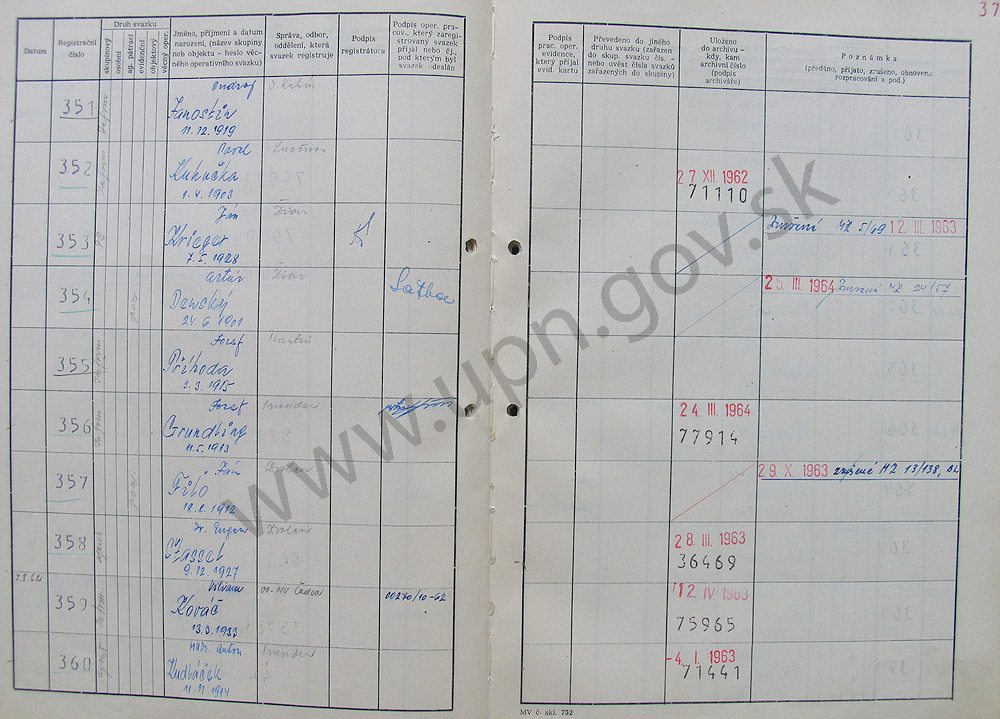 37
Datum
Registrační číslo
Druh svazku
skupinový
osobní
ag. pátrací
evidenční
objektový
věcný oper.
Jméno, příjmení a datum
narození, (název skupiny
neb objektu - heslo věc-
ného operativního svazku)
Správa, odbor,
oddělení, která
svazek registruje
Podpis
registrátora
Podpis oper. pra-
cov., který zaregi-
strovaný svazek
přijal nebo čj.,
pod kterým byl
svazek odeslán
Podpis
prac. oper.
evidence,
který přijal
evid. kartu
Převedeno do jiného
druhu svazku (zařazen
do skup. svazku čís. -
nebo uvést čísla svazků
zařazených do skupiny)
Uloženo
do archivu -
kdy, kam
archivní číslo
(podpis
archiváře)
Poznámka
(předáno, přijato, zrušeno, obnoveno
rozpracování a pod.)
351
Ondrej
Janostin
11.12.1919
352
Pavel
Kuhučka
1.4.1903
27 XII 1962
71110
353
Ján
Krieger
7.5.1928
Zrušení MZ 5/69 12. III. 1963
354
Artúr
Dewský
24 6 1901
25. III. 1964 Zrušení MZ 24/57
355
Jozef
Příhoda
3.3.1915
Martin
356
Jozef
Grundling
11.5.1913
Prievidza
24. III. 1964
77914
357
Ján
Filo
18.2.1912
Zvolen
29. X. 1963 zrušené MZ 13/138,
358
Dr. Eugen
Glasser
9.12.1927
Zvolen
28. III. 1963
36469
7.8.62
359
Viliam
Kováč
13.3.1933
OO-MV Čadca
00270/10-62
12. IV 1963
75965
360
Anton
Kudláček
11.11.1914
Prievidza
-4. I. 1963
71441
MV č. skl. 732
www.upn.gov.sk